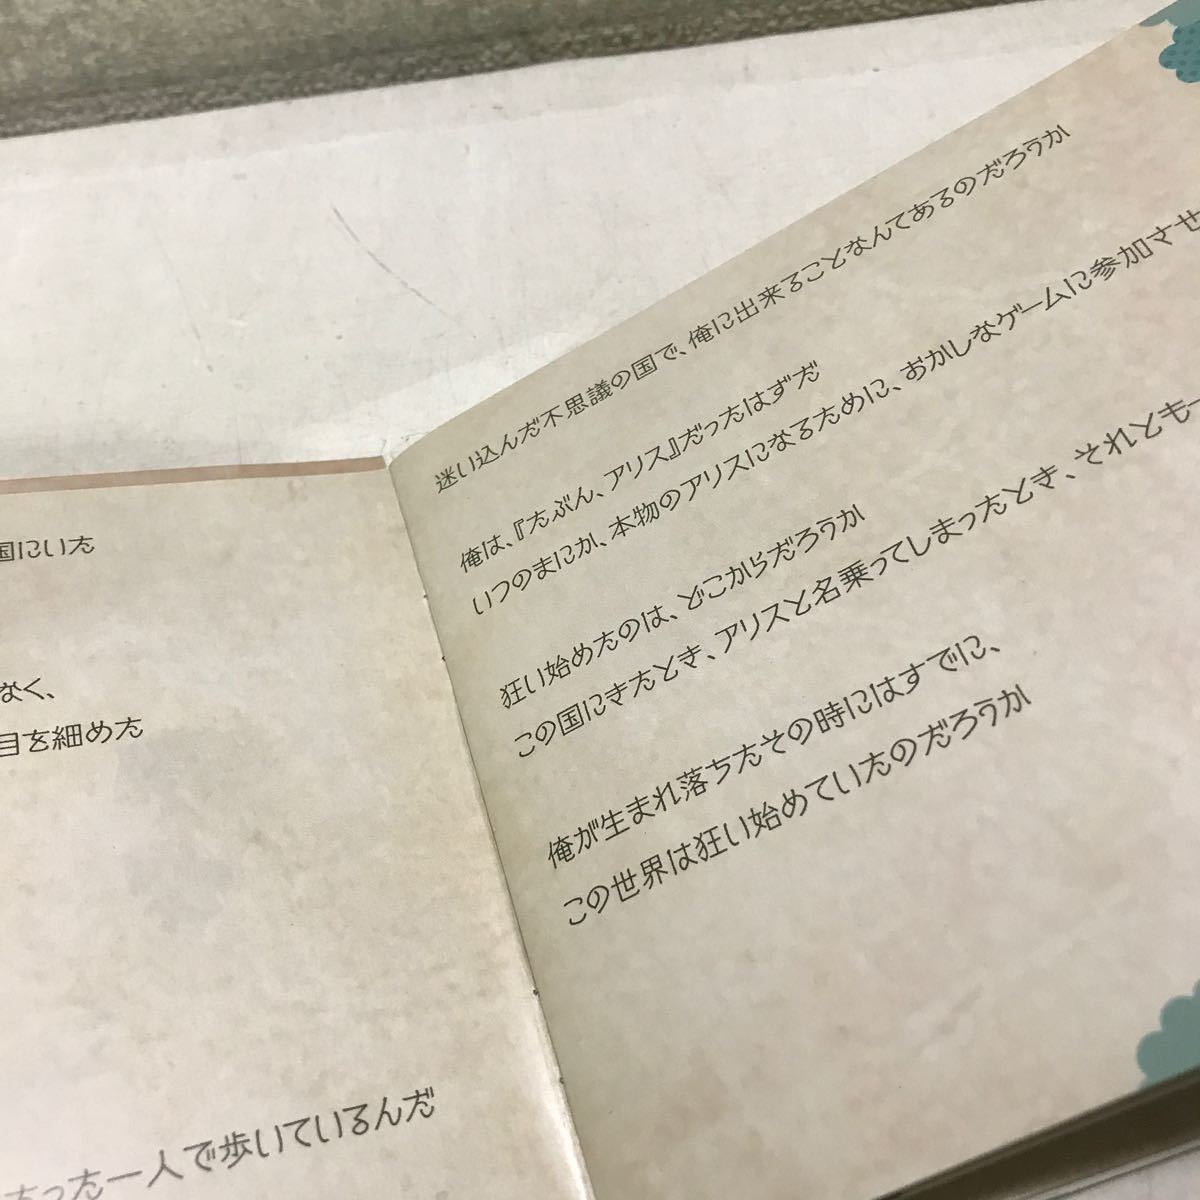 国にいた
なく、
目を細めた
たった一人で歩いているんだ
迷い込んだ不思議の国で、俺に出来ることなんてあるのだろうか
俺は、『たぶん、アリス』だったはずだ
いつのまにか、本物のアリスになるために、おかしなゲームに参加させ
狂い始めたのは、どこからだろうか
この国にきたとき、アリスと名乗ってしまったとき、それとも
俺が生まれ落ちたその時にはすでに、
この世界は狂い始めていたのだろうか